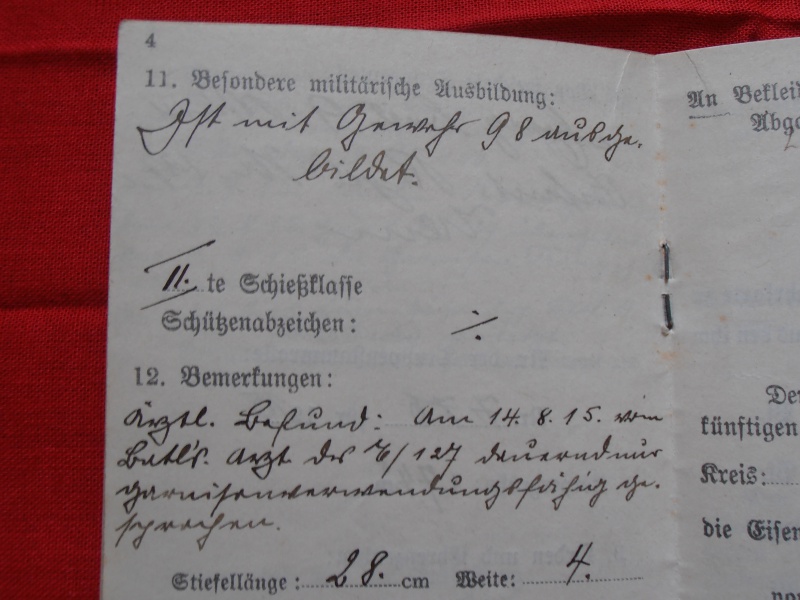 4
11. Besondere militärische Ausbildung:
Ist mit Gewehr 98 ausge-
bildet.
II. te Schießklasse
Schützenabzeichen: ./.
12. Bemerkungen:
Ärztl. Befund: Am 14.8.15. vom
Batls. Arzt des /127 dauernd nur
garnisonverwendungsfähig ge-
sprochen.
Stiefellänge: 28. cm Weite: 4.
An Beklei
Abg
De
künftigen
Kreis:
die Eisen